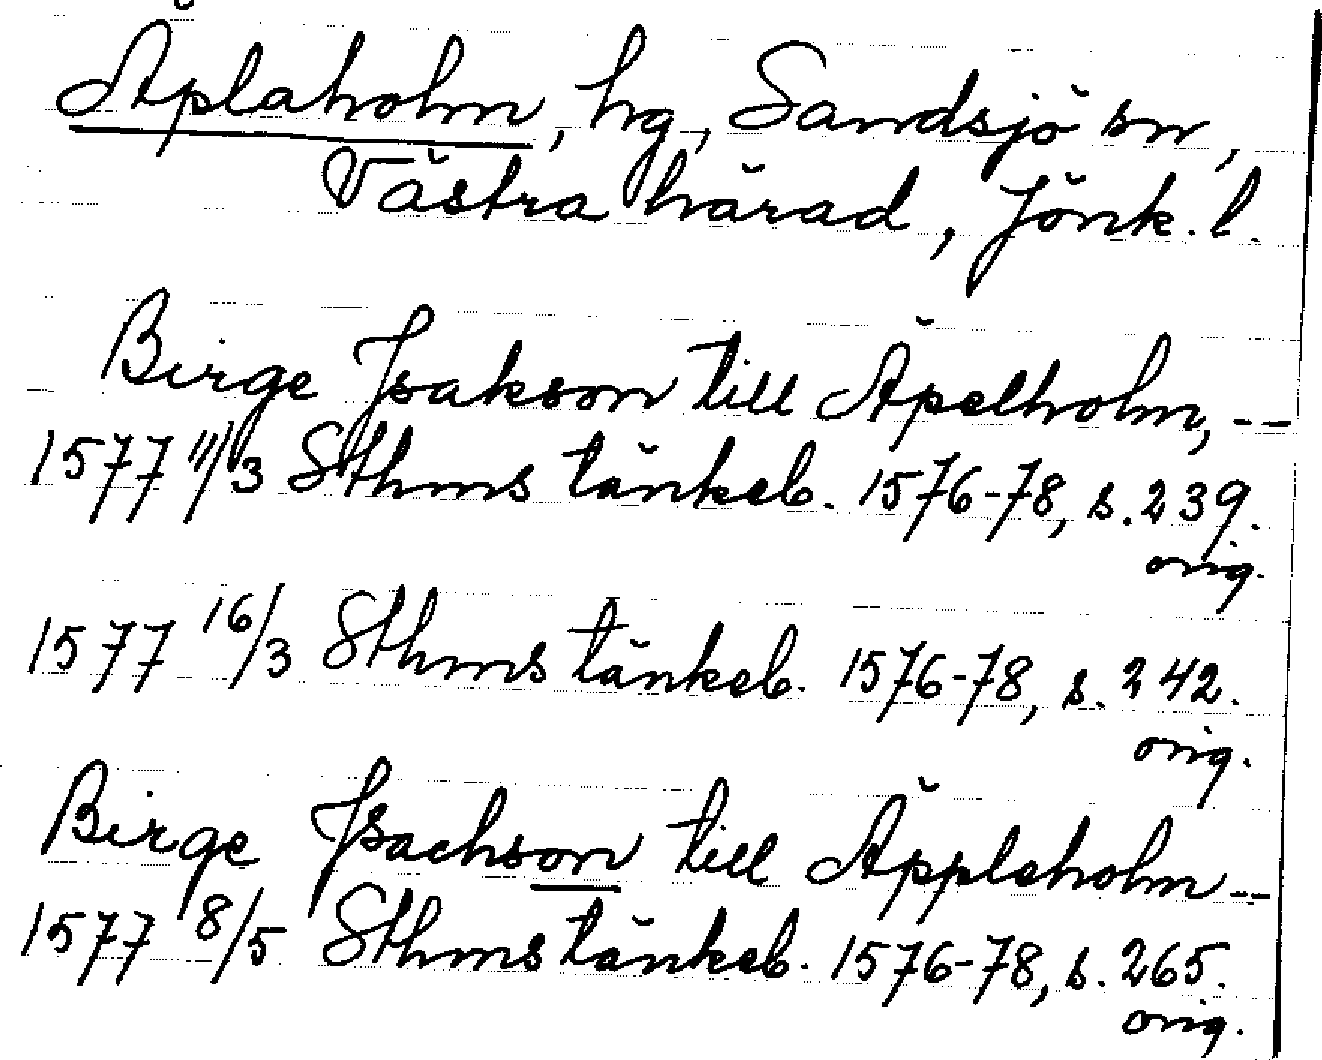 Äplaholm, hg, Sandsjö sn,
Västra härad, Jönk. l.
Birge Jsakson till Äpelholm, --
1577 11/3 Sthms tänkeb. 1576-78, s. 239.
orig.
1577 16/3 Sthms tänkeb. 1576-78, s. 242.
orig.
Birge Jsachson till Äppleholm --
1577 8/5 Sthms tänkeb. 1576-78, s. 265.
orig.